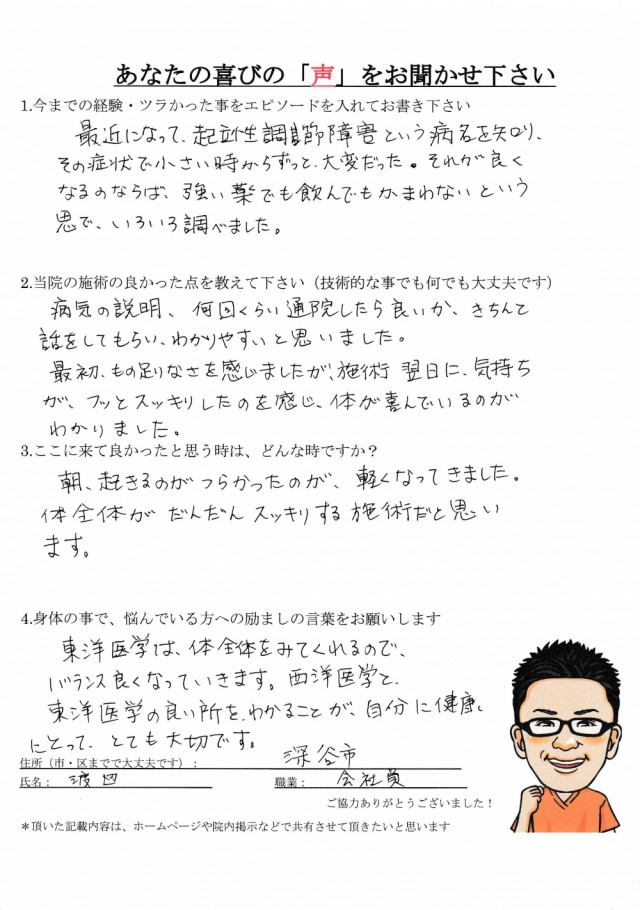 あなたの喜びの「声」をお聞かせ下さい
1.今までの経験・ツラかった事をエピソードを入れてお書き下さい
最近になって、起立性調節障害という病名を知り、
その症状で小さい時からずっと、大変だった。それが良く
なるのならば、強い薬でも飲んでもかまわないという
思で、いろいろ調べました。
2.当院の施術の良かった点を教えて下さい（技術的な事でも何でも大丈夫です）
病気の説明、何回くらい通院したら良いか、きちんと
話をしてもらい、わかりやすいと思いました。
最初、もの足りなさを感じましたが、施術 翌日に、気持ち
が、フッとスッキリしたのを感じ、体が喜んでいるのが
わかりました。
3.ここに来て良かったと思う時は、どんな時ですか？
朝、起きるのがつらかったのが、軽くなってきました。
体全体がだんだんスッキリする施術だと思い
ます。
4.身体の事で、悩んでいる方への励ましの言葉をお願いします
東洋医学は、体全体をみてくれるので、
バランス良くなっていきます。西洋医学と、
東洋医学の良い所を、わかることが、自分に健康
にとって、とても大切です。
住所（市・区までで大丈夫です）： 深谷市
氏名： 渡辺 職業： 会社員
ご協力ありがとうございました！
＊頂いた記載内容は、ホームページや院内掲示などで共有させて頂きたいと思います